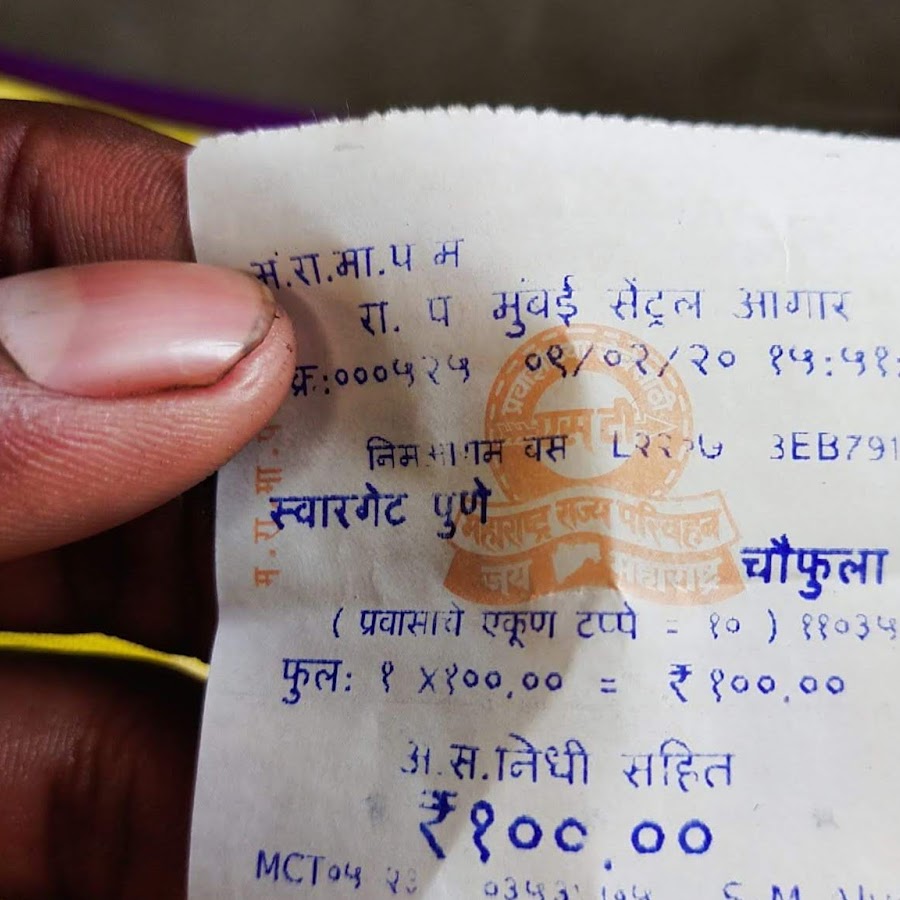 मं.रा.मा.प म
रा. प मुंबई सेंट्रल आगार
क्र:०००५२५ ०९/०२/२० १५:५१:
बस 3EB791
स्वारगेट पुणे
चौफुला
( प्रवासाचे एकूण टप्पे = १० ) ११०३५
फुल: १ X१००.०० = ₹ १००.००
अ.स.निधी सहित
₹१००.००
MCT०५ २३
म.रा.मा.प
महाराष्ट्र राज्य परिवहन
जय महाराष्ट्र